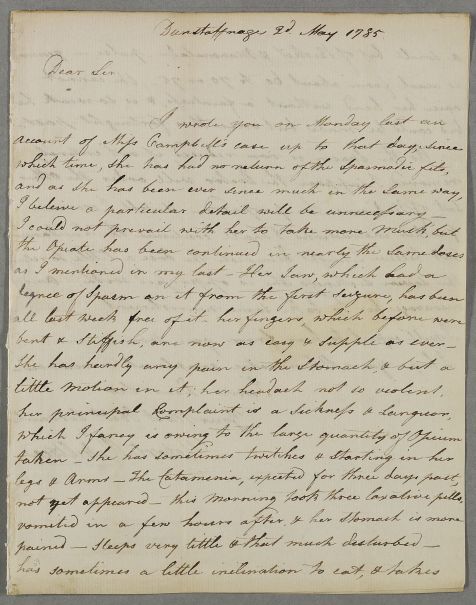 Dunstaffnage 2d May 1785
Dear Sir
I wrote you on Monday last an
account of Miss Campbell's case up to that day, since
which time, she has had no return of the Spasmodic fits,
and as she has been ever since much in the same way,
I believe a particular detail will be unnecessary —
I could not prevail with her to take more Musk, but
the Opiate has been continued in nearly the same doses
as I mentioned in my last — Her Jaw, which had a
degree of Spasm on it from the first seizure, has been
all last week free of it. her fingers, which before were
bent & stiffish, are now as easy & supple as ever —
She has hardly any pain in the Stomach, & but a
little motion in it, her headach not so violent,
her principal Complaint is a Sickness & Languor,
which I fancy is owing to the large quantity of Opium
taken — She has sometimes twitches & starting in her
legs & Arms — The Catamenia, expected for three days past,
not yet appeared — this morning took three laxative pills,
vomited in a few hours after & her Stomach is more
pained — Sleeps very little & that much disturbed —
has sometimes a little inclination to eat, & takes